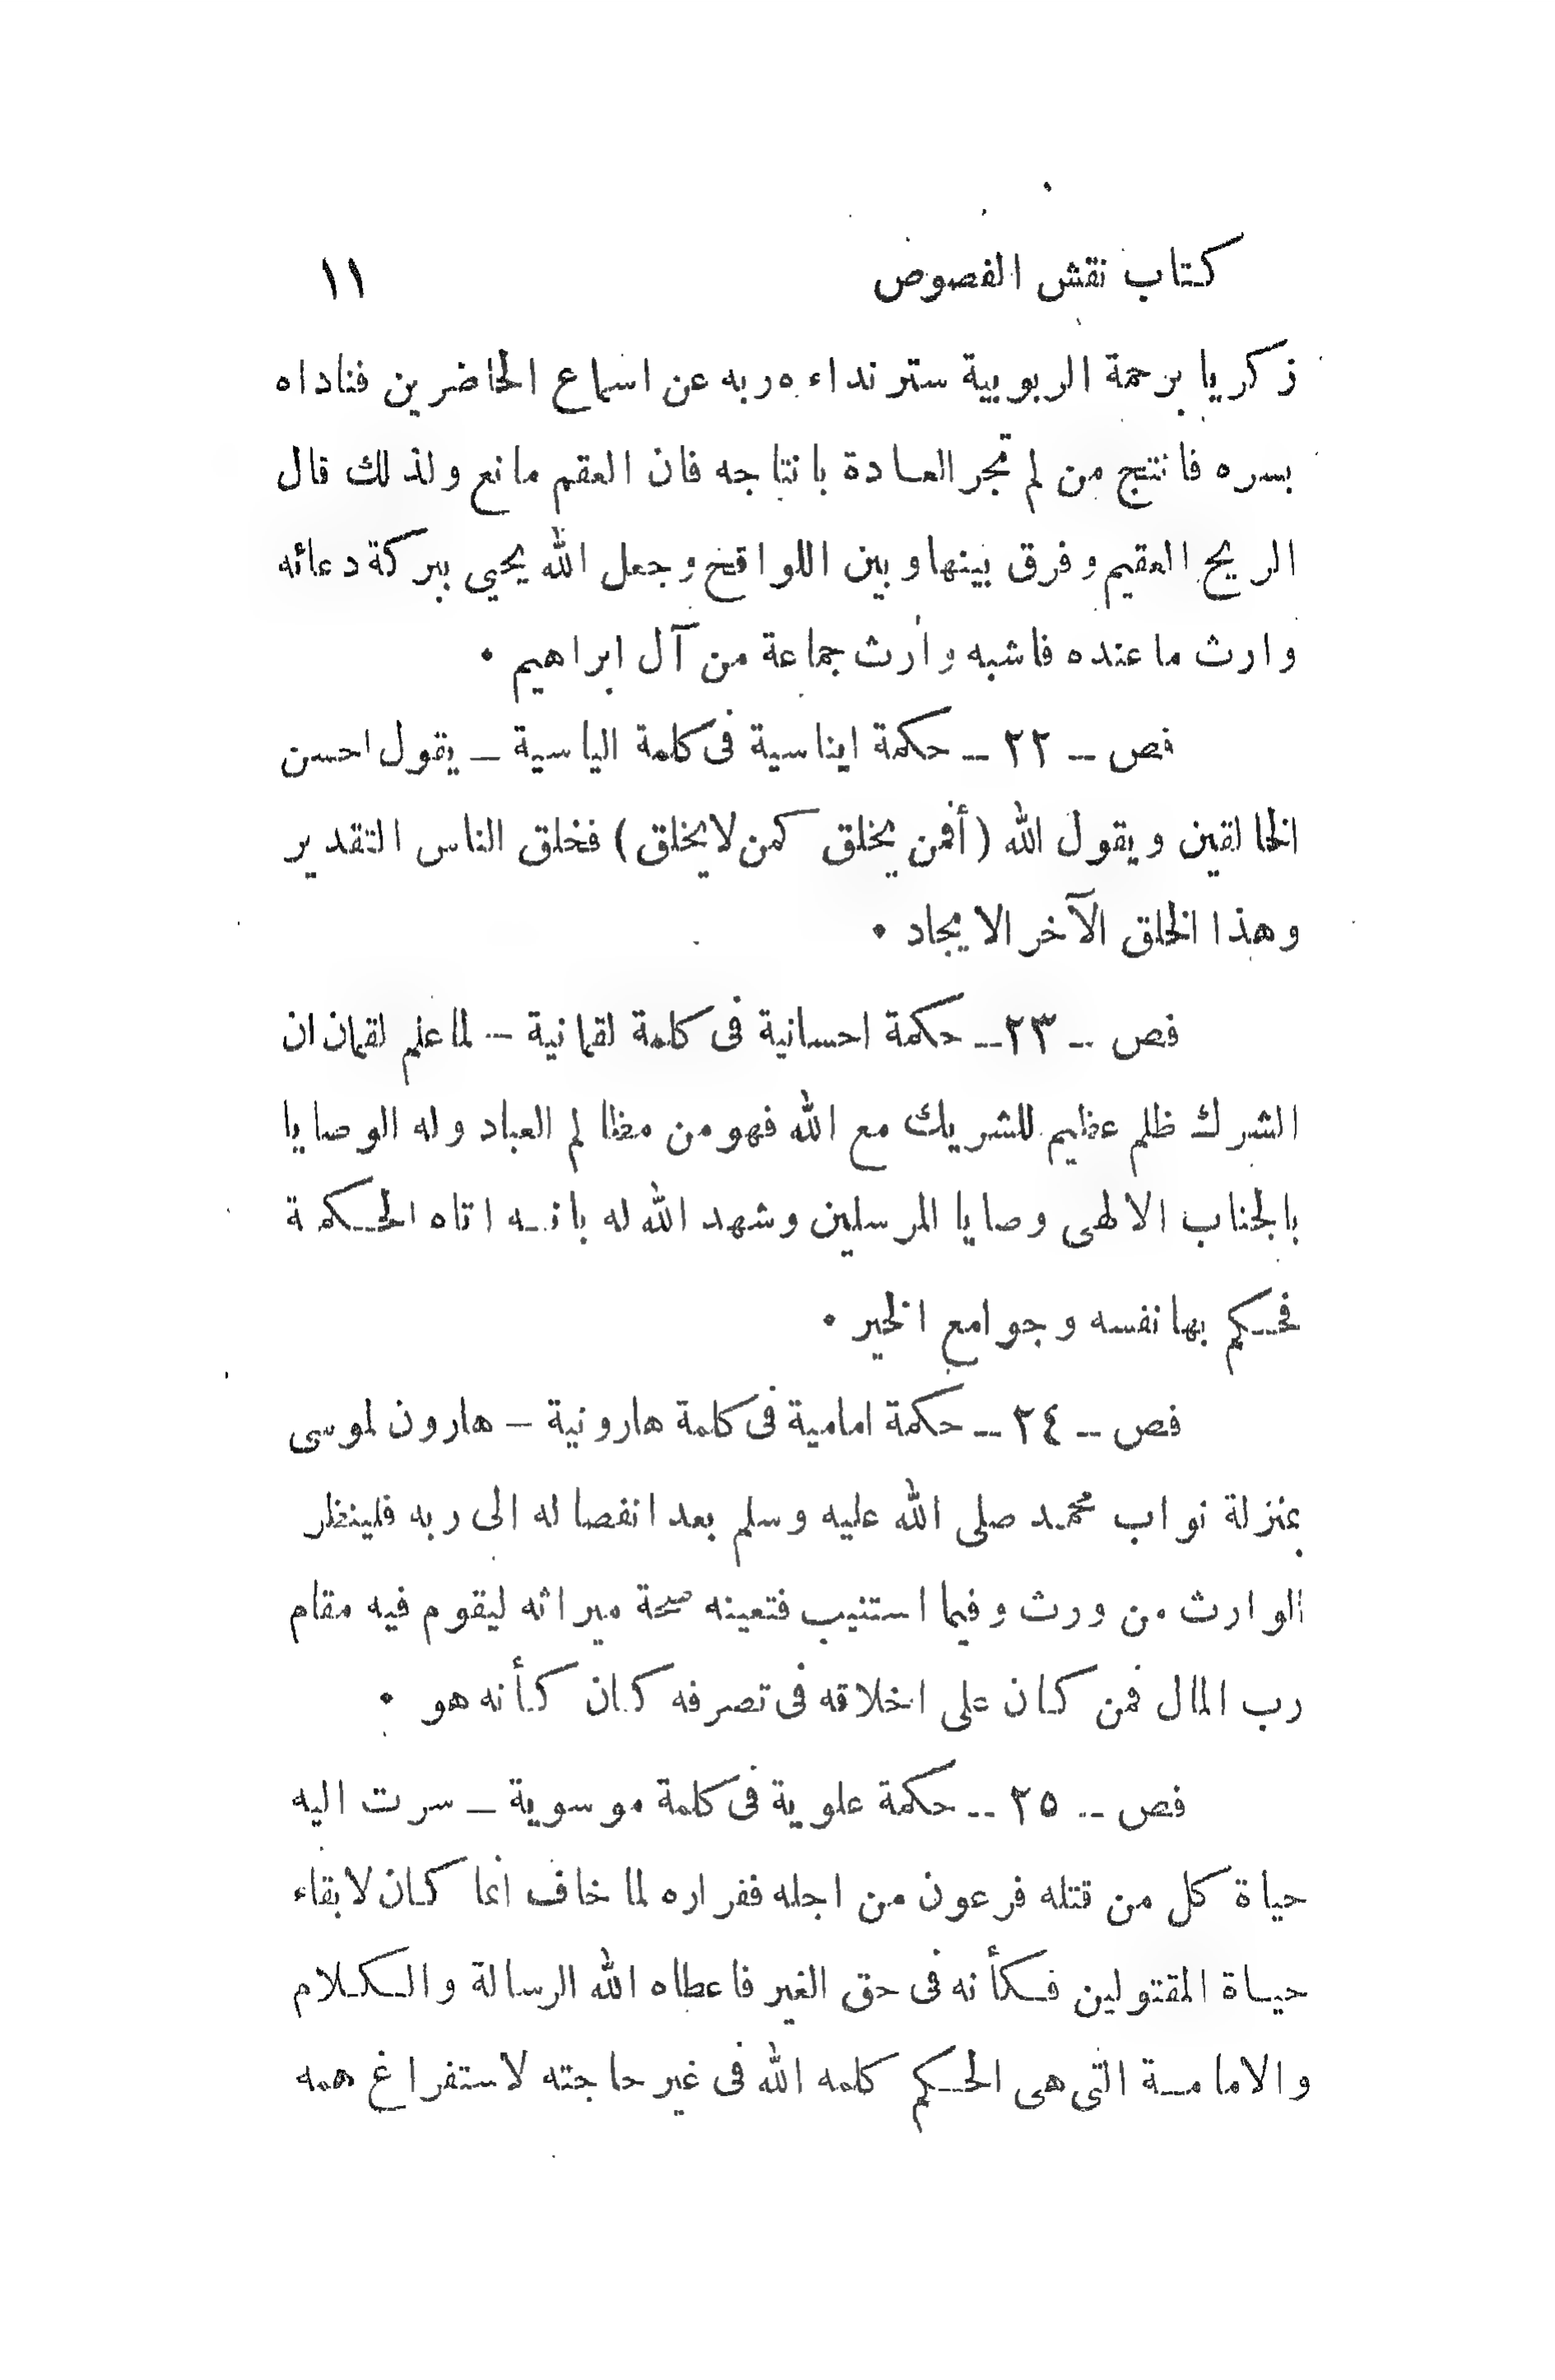 كتاب نقش الفصوص ١١
زكريا برحمة الربوبية ستر نداءه ربه عن اسماع الحاضرين فناداه
بسره فانتج من لم تجر العادة بانتاجه فان العقم مانع ولذلك قال
الريح العقيم وفرق بينها وبين اللواقح وجعل الله يحيي ببركة دعائه
وارث ما عنده فاشبه وارث جماعة من آل ابراهيم •
فص -- ٢٢ -- حكمة ايناسية فى كلمة الياسية – يقول احسن
الخالقين ويقول الله (أفمن يخلق كمن لا يخلق) فخلق الناس التقدير
وهذا الخلق الآخر الايجاد •
فص -- ٢٣ -- حكمة احسانية فى كلمة لقمانية – لما علم لقمان ان
الشرك ظلم عظيم للشريك مع الله فهو من مظالم العباد وله الوصايا
بالجناب الالهى وصايا المرسلين وشهد الله له بانه اتاه الحكمة
فحكم بها نفسه وجوامع الخير •
فص -- ٢٤ -- حكمة امامية فى كلمة هارونية – هارون لموسى
بمنزلة نواب محمد صلى الله عليه وسلم بعد انفصاله الى ربه فلينظر
الوارث من ورث وفيما استنيب فتعينه صحة ميراثه ليقوم فيه مقام
رب المال فمن كان على اخلاقه فى تصرفه كان كأنه هو •
فص -- ٢٥ -- حكمة علوية فى كلمة موسوية – سرت اليه
حياة كل من قتله فرعون من اجله ففراره لما خاف انما كان لابقاء
حياة المقتولين فكأنه فى حق الغير فاعطاه الله الرسالة والكلام
والامامة التى هى الحكم كلمه الله فى غير حاجته لاستفراغ همه